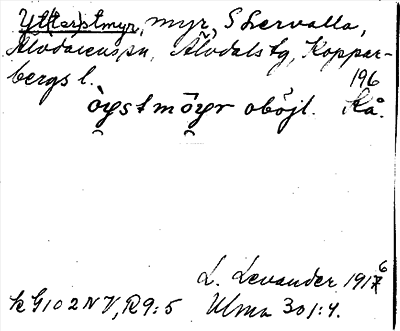 Ytt(erst)myr, myr, S Hervalla,
Älvdalens sn, Älvdals tg, Koppar-
bergs l. 196
òystmöyr oböjl. Kå.
L. Levander 1916
KG102NV, R9:5 Ulma 301:4.